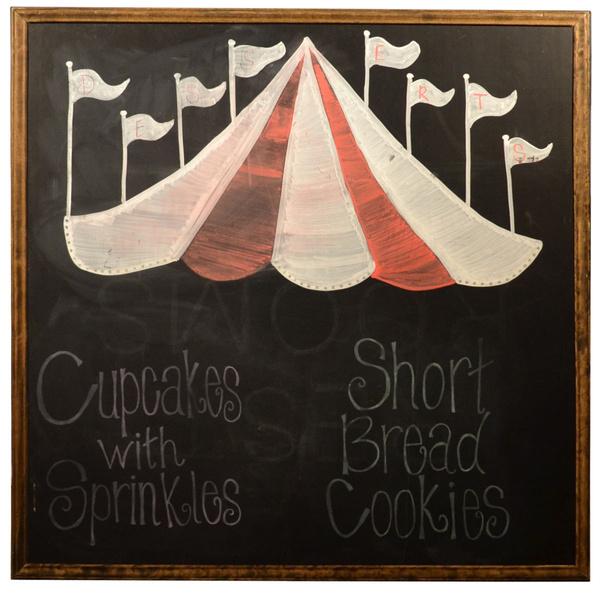 DESSERTS
Cupcakes
with
Sprinkles
Short
Bread
Cookies